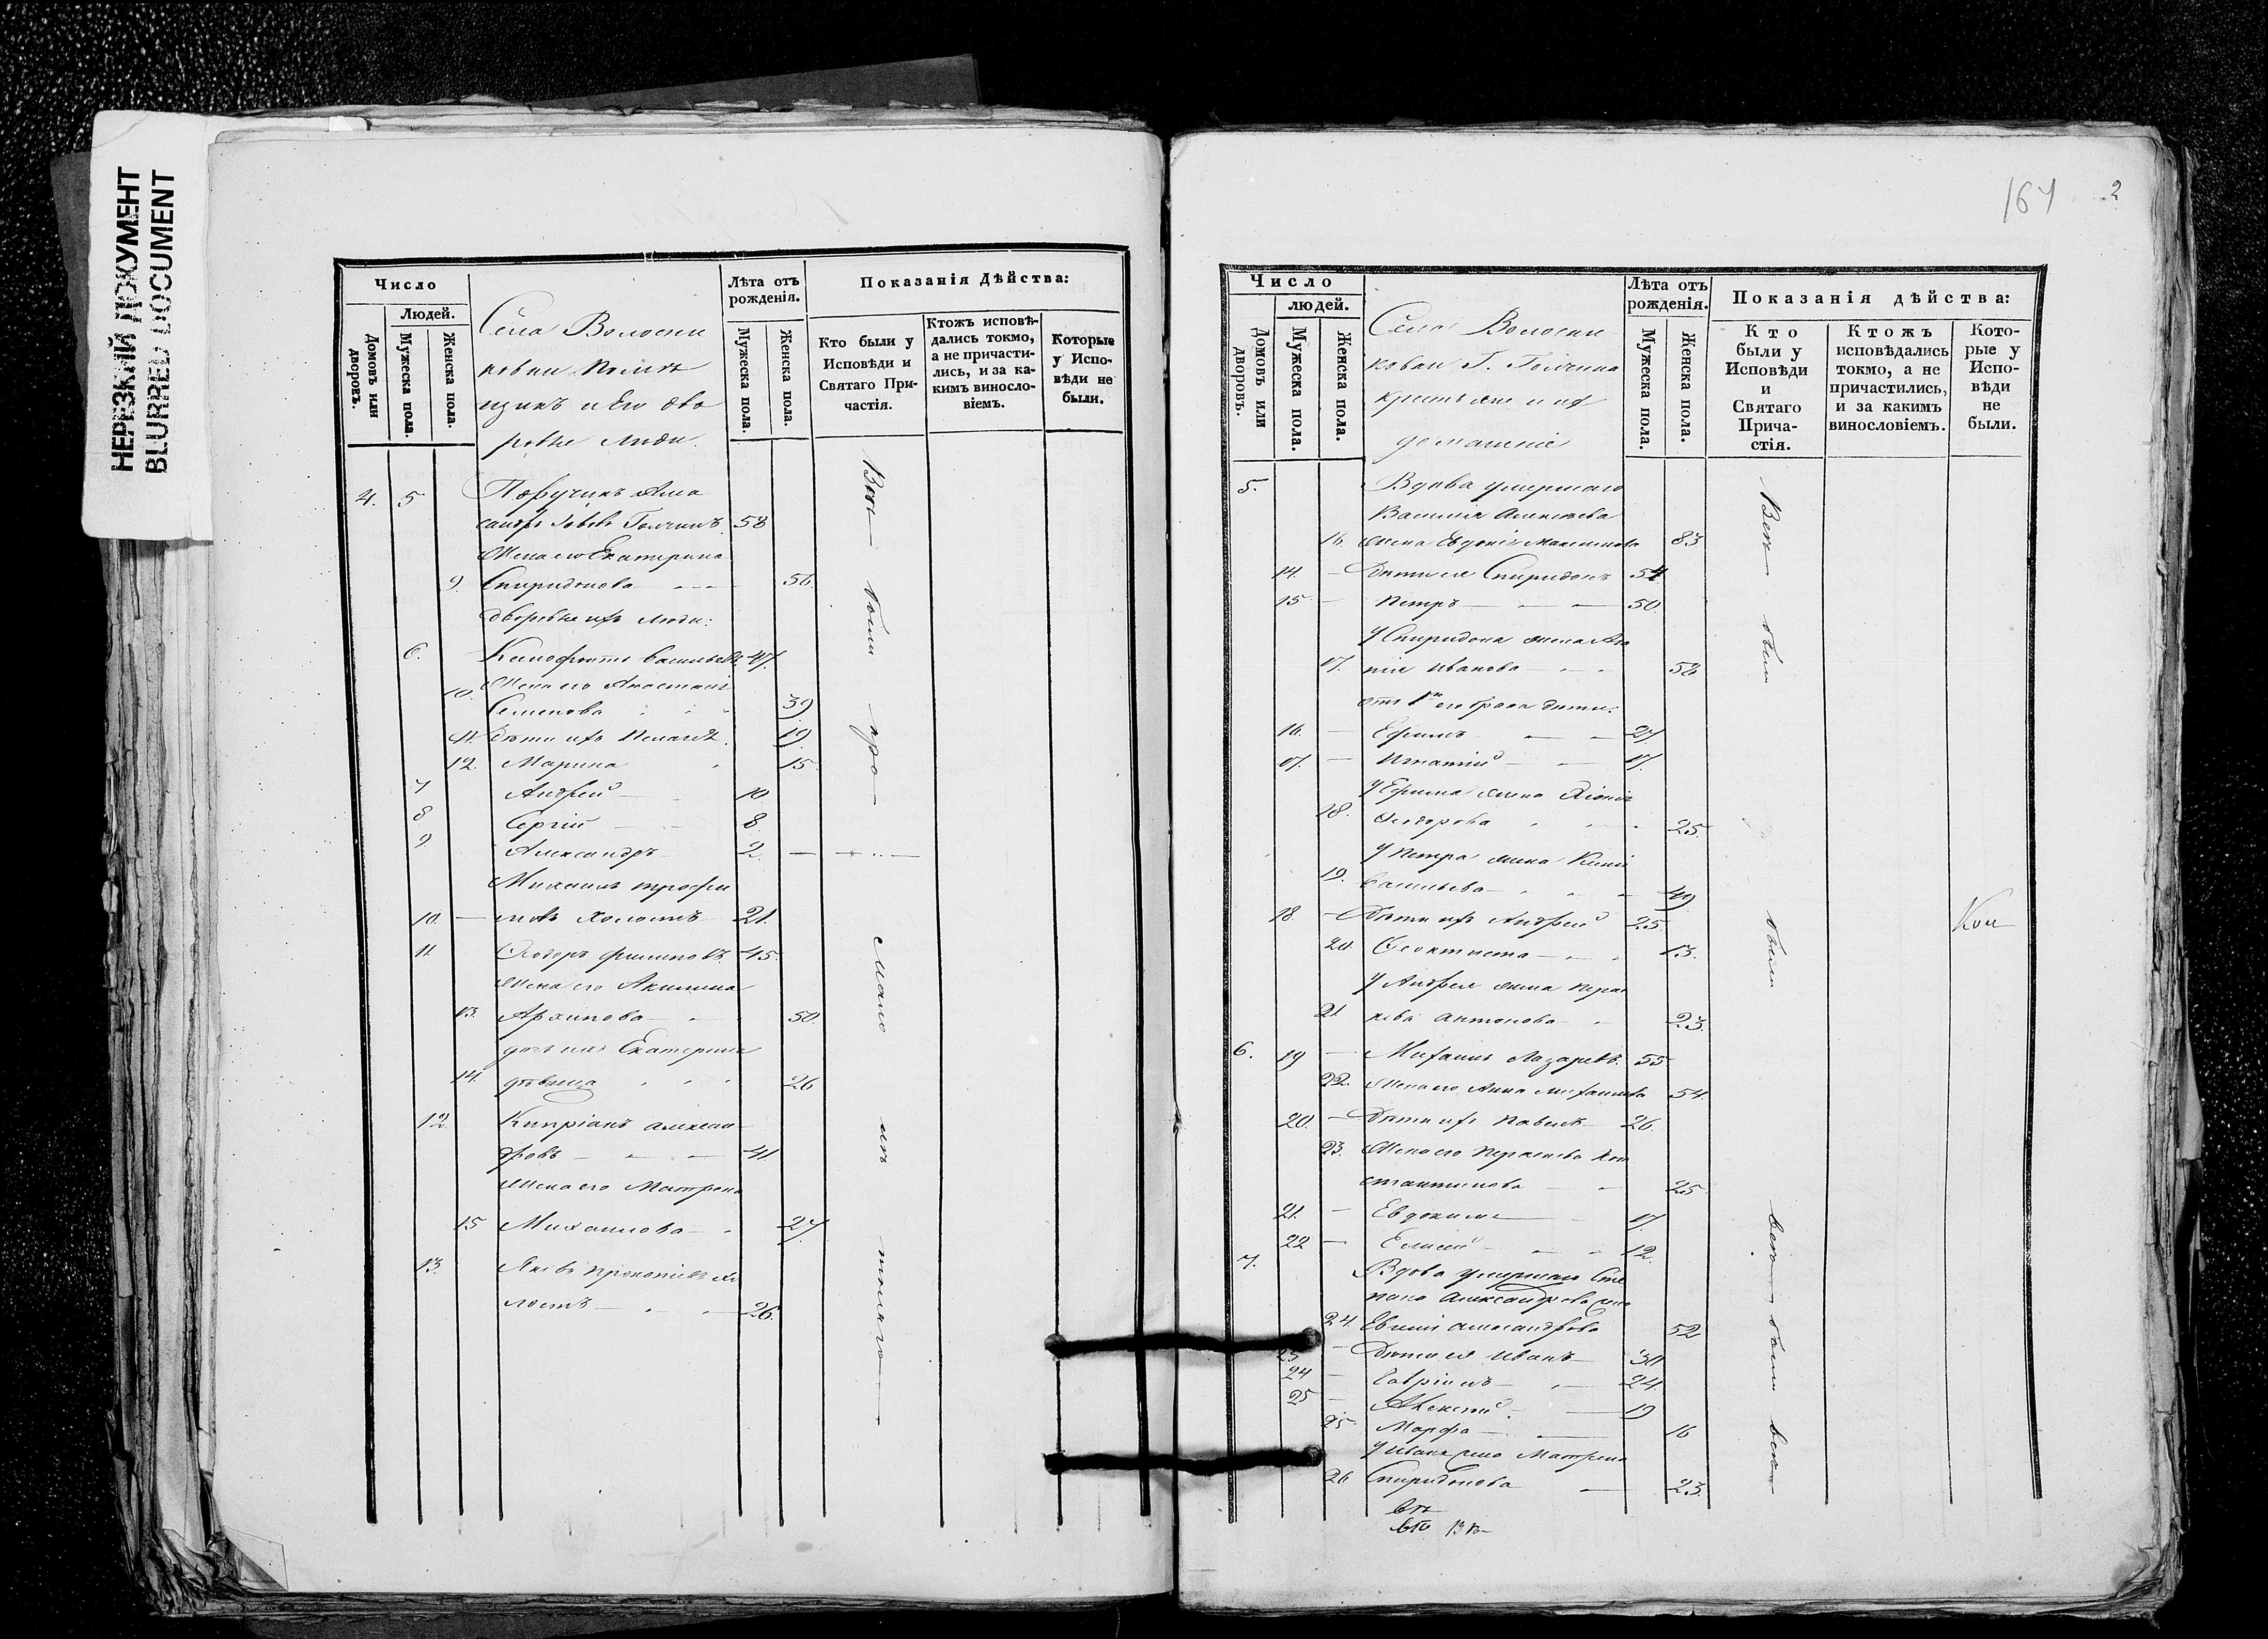 НЕРЕЗКИЙ ДОКУМЕНТ
BLURRED DOCUMENT
Число
Людей.
Домовъ или дворовъ.
Мужеска пола.
Женска пола.
Села Волосни
ковки
щикъ и Его дво
ровые люди.
Лѣта отъ рожденія.
Мужеска пола.
Женска пола.
Показанія Дѣйства:
Кто были у Исповѣди и Святаго Причастія.
Ктожъ исповѣдались токмо, а не причастились, и за какимъ винословіемъ.
Которые у Исповѣди не были.
4. 5 Поручикъ
58
Жена его Екатерина
9. Спиридонова 56.
дворовые ихъ люди:
6. Ксенофонтъ Васильевъ 47.
Жена его Анастасія
10. Семенова 39
11. Дѣти ихъ Пелагея 19.
12. Марина 15
7 Андрей 10
8 Сергій 8
9 Александръ 2
Михаилъ Трофи
10. мовъ холостъ 21.
11. Ѳеодоръ Филиповъ 45.
Жена его Акилина
13. Архипова 50.
дочь ихъ Екатерина
14. дѣвица 26
12. Кипріанъ Алексан
дровъ 41
Жена его Матрона
15 Михаилова 27.
13. Яковъ Прокопіевъ хо
лостъ 26.
Всѣ были
164 2
Число
людей.
Домовъ или дворовъ.
Мужеска пола.
Женска пола.
Села Волосни
ковки Г.
крестьяне и их
домашніе
Лѣта отъ рожденія.
Мужеска пола.
Женска пола.
Показанія дѣйства:
Кто были у Исповѣди и Святаго Причастія.
Ктожъ исповѣдались токмо, а не причастились, и за какимъ винословіемъ.
Которые у Исповѣди не были.
5. Вдова умершаго
Василія Алексѣева
16. жена Евдокія Максимова 83
14. Дѣти ея Спиридонъ 54
15 Петръ 50.
У Спиридона жена
17. Иванова 58
отъ 1го его брака дѣти:
16. Ефимъ 27.
17. Игнатій 17.
У Ефима жена Хіонія
18. Ѳеодорова 25.
У Петра жена
19. Васильева 49
18. Дѣти ихъ Андрей 25.
20 Ѳеоктиста 13.
У Андрея жена Парас
21 кева Антонова 23.
6. 19 Михаилъ Лазаревъ 55
22. Жена его Анна Михаилова 54.
20. Дѣти ихъ Павелъ 26.
23. Жена его Параскева Кон
стантинова 25
21. Евдокимъ 17.
22 Елисей 12.
7. Вдова умершаго Сте
пана Александрова жена
24. Евгенія Александрова 52
23 Дѣти ея Иванъ 30
24 Гавріилъ 24.
25 Алексѣй 19
25. Марфа 16
У Ивана жена Матрена
26 Спиридонова 23.
Всѣ были
были
всѣ были всѣ